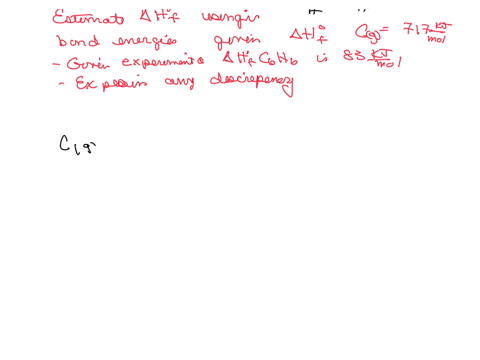 Estimate ΔH°f using
bond energies given ΔH°f C(g) = 717 kJ/mol
- Given experimental ΔH°f C6H6 is 83 kJ/mol
- Explain any discrepancy
C(g)